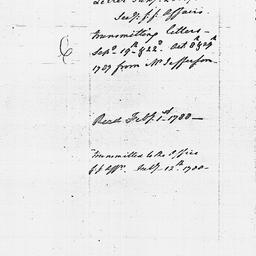 Letter
Secy. f. Affairs
transmitting letters—
Sepr. 19th & 22d. Oct 8th & 9th
1787 from Mr Jefferson.
Read Feby. 1st 1788—
Transmitted to the Office
f. Affrs. Feby. 12th. 1788—